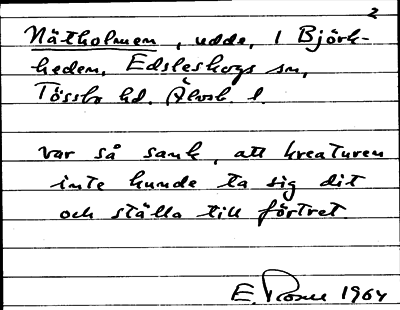 2
Nätholmen, udde, i Björk-
heden, Edsleskogs sn,
Tössbo hd. Älvsb. l.
var så sank, att kreaturen
inte kunde ta sig dit
och ställa till förtret
E. 1964